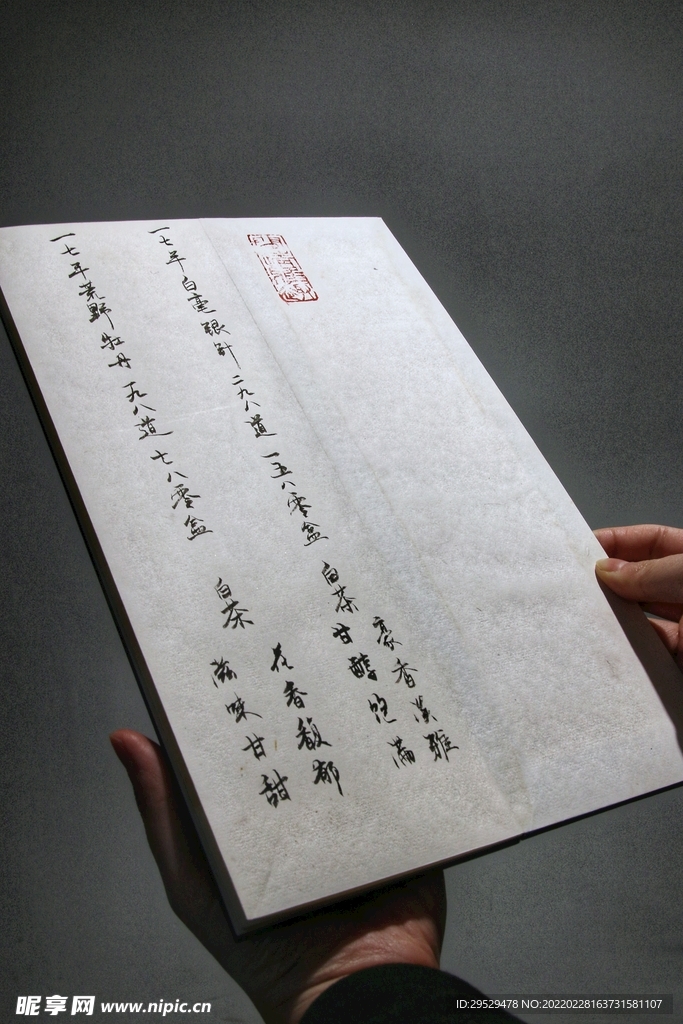 一七年白毫銀針 二九八道 一五八零盒
白茶
毫香淡雅
甘醇飽滿
一七年荒野牡丹 一九八道 七八零盒
白茶
花香馥郁
滋味甘甜
昵享网 www.nipic.cn
ID:29529478 NO:20220228163731581107